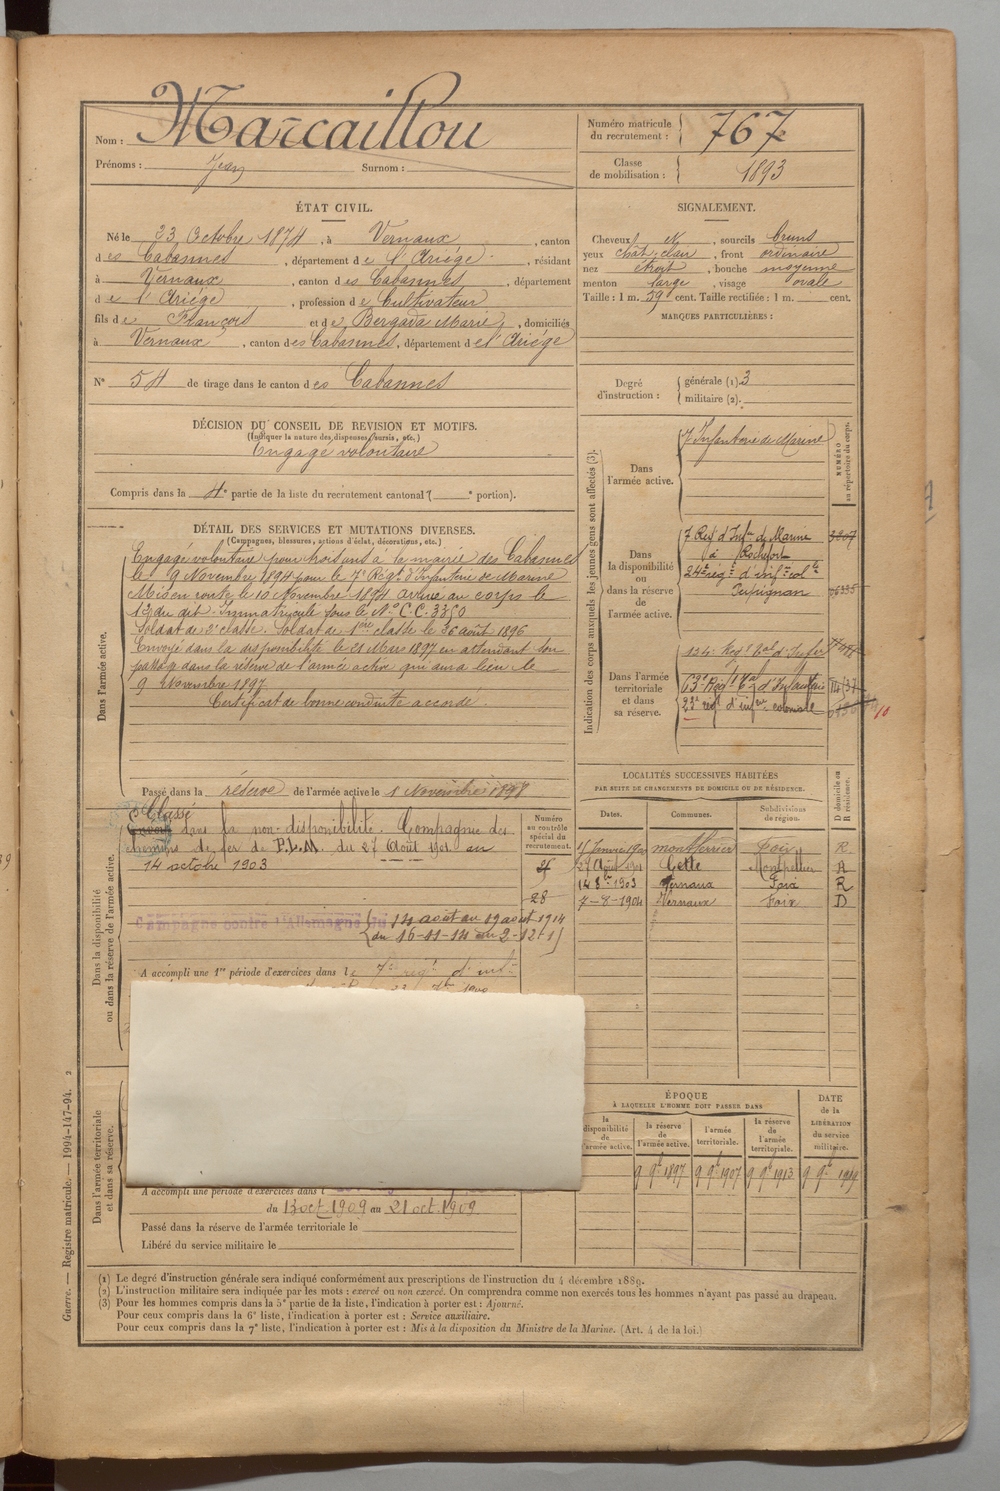 Nom : Marcaillou
Prénoms : Jean Surnom :
Numéro matricule du recrutement : 767
Classe de mobilisation : 1893
ÉTAT CIVIL.
Né le 23 Octobre 1874, à Vernaux, canton
des Cabannes, département de l'Ariége, résidant
à Vernaux, canton des Cabannes, département
de l'Ariége, profession de Cultivateur
fils de François et de Bergada Marie, domiciliés
à Vernaux, canton des Cabannes, département de l'Ariége
N° 54 de tirage dans le canton des Cabannes
SIGNALEMENT.
Cheveux et, sourcils bruns
yeux chât. clair, front ordinaire
nez étroit, bouche moyenne
menton large, visage ovale
Taille : 1 m. 59 cent. Taille rectifiée : 1 m. cent.
MARQUES PARTICULIÈRES :
Degré d'instruction : générale (1). 3
militaire (2).
DÉCISION DU CONSEIL DE REVISION ET MOTIFS.
(Indiquer la nature des dispenses, sursis, etc.)
Engagé volontaire
Compris dans la 4e partie de la liste du recrutement cantonal ( e portion).
DÉTAIL DES SERVICES ET MUTATIONS DIVERSES.
(Campagnes, blessures, actions d'éclat, décorations, etc.)
Dans l'armée active.
Engagé volontaire pour trois ans à la mairie des Cabannes
le 9 Novembre 1894 pour le 7e Régt d'Infanterie de Marine
Mis en route le 10 Novembre 1894 arrivé au corps le
12 du dit. Immatriculé sous le N° C.C. 3350
Soldat de 2e classe. Soldat de 1ère classe le 26 août 1896
Envoyé dans la disponibilité le 21 Mars 1897 en attendant son
passage dans la réserve de l'armée active qui aura lieu le
9 Novembre 1897
Certificat de bonne conduite accordé.
Passé dans la réserve de l'armée active le 1 Novembre 1897
Indication des corps auxquels les jeunes gens sont affectés (3).
NUMÉRO au répertoire du corps.
Dans l'armée active.
7 Infanterie de Marine
Dans la disponibilité ou dans la réserve de l'armée active.
7 Regt d'Infrie de Marine
à Rochefort
24e régt d'infrie colle
Perpignan
Dans l'armée territoriale et dans sa réserve.
134e Regt tal d'Infie
63e Régt tal d'Infanterie
22e régt d'infrie coloniale
10
LOCALITÉS SUCCESSIVES HABITÉES
PAR SUITE DE CHANGEMENTS DE DOMICILE OU DE RÉSIDENCE.
Dates. Communes. Subdivisions de région. D domicile ou R résidence.
montferrier Foix R
27 Août 1901 Cette Montpellier R
14 8bre 1903 Vernaux Foix R
7-8-1904 Vernaux Foix D
Dans la disponibilité ou dans la réserve de l'armée active.
Numéro au contrôle spécial du recrutement.
Classé
dans la non-disponibilité. Compagnie des
chemins de fer de P.L.M. du 27 Août 1901 au
14 octobre 1903
28
Campagne contre l'Allemagne du 14 août au 19 août 1914
du 16-11-14 au 2-12-1
A accompli une 1re période d'exercices dans le 7e régt d'infie
Dans l'armée territoriale et dans sa réserve.
A accompli une période d'exercices dans l
du 13 oct. 1909 au 21 oct. 1909
Passé dans la réserve de l'armée territoriale le
Libéré du service militaire le
ÉPOQUE
À LAQUELLE L'HOMME DOIT PASSER DANS
la disponibilité de l'armée active. la réserve de l'armée active. l'armée territoriale. la réserve de l'armée territoriale.
DATE de la LIBÉRATION du service militaire.
9 9bre 1897 9 9bre 1907 9 9bre 1913 9 9bre 1919
(1) Le degré d'instruction générale sera indiqué conformément aux prescriptions de l'instruction du 4 décembre 1889.
(2) L'instruction militaire sera indiquée par les mots : exercé ou non exercé. On comprendra comme non exercés tous les hommes n'ayant pas passé au drapeau.
(3) Pour les hommes compris dans la 5e partie de la liste, l'indication à porter est : Ajourné.
Pour ceux compris dans la 6e liste, l'indication à porter est : Service auxiliaire.
Pour ceux compris dans la 7e liste, l'indication à porter est : Mis à la disposition du Ministre de la Marine. (Art. 4 de la loi.)
Guerre. — Registre matricule. — 1994-147-94. 2